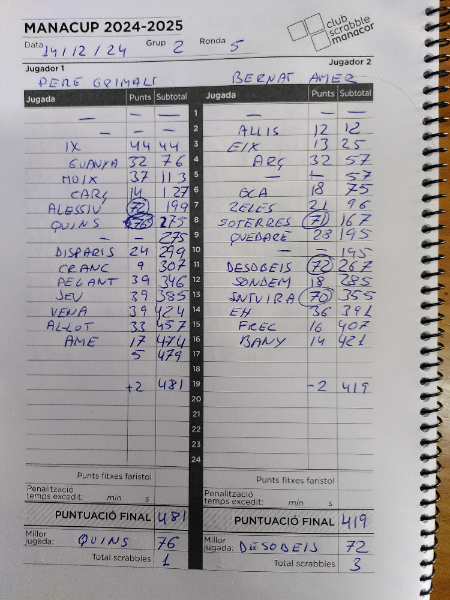 MANACUP 2024-2025
club scrabble manacor
Data 14/12/24 Grup 2 Ronda 5
Jugador 1 Jugador 2
PERE GRIMALT BERNAT AMER
Jugada Punts Subtotal Jugada Punts Subtotal
— — — 1 — — —
— — — 2 ALLIS 12 12
IX 44 44 3 EIX 13 25
GUANYA 32 76 4 ARÇ 32 57
MOIX 37 113 5 — — 57
CARÇ 14 127 6 GCA 18 75
ALESSIU 72 199 7 ZELES 21 96
QUINS 76 275 8 SOTERRES 71 167
— — 275 9 QUEDARÉ 28 195
DISPARIS 24 299 10 — — 195
CRANC 9 307 11 DESOBEIS 72 267
PELANT 39 346 12 SONDEM 18 285
JEU 39 385 13 INTVIRA 70 355
VENA 39 424 14 EH 36 391
ALLOT 33 457 15 FREC 16 407
AME 17 474 16 BANY 14 421
5 479 17
18
+2 481 19 -2 419
20
21
22
23
24
Punts fitxes faristol Punts fitxes faristol
Penalització temps excedit: min s Penalització temps excedit: min s
PUNTUACIÓ FINAL 481 PUNTUACIÓ FINAL 419
Millor jugada: QUINS 76 Millor jugada: DESOBEIS 72
Total scrabbles 1 Total scrabbles 3